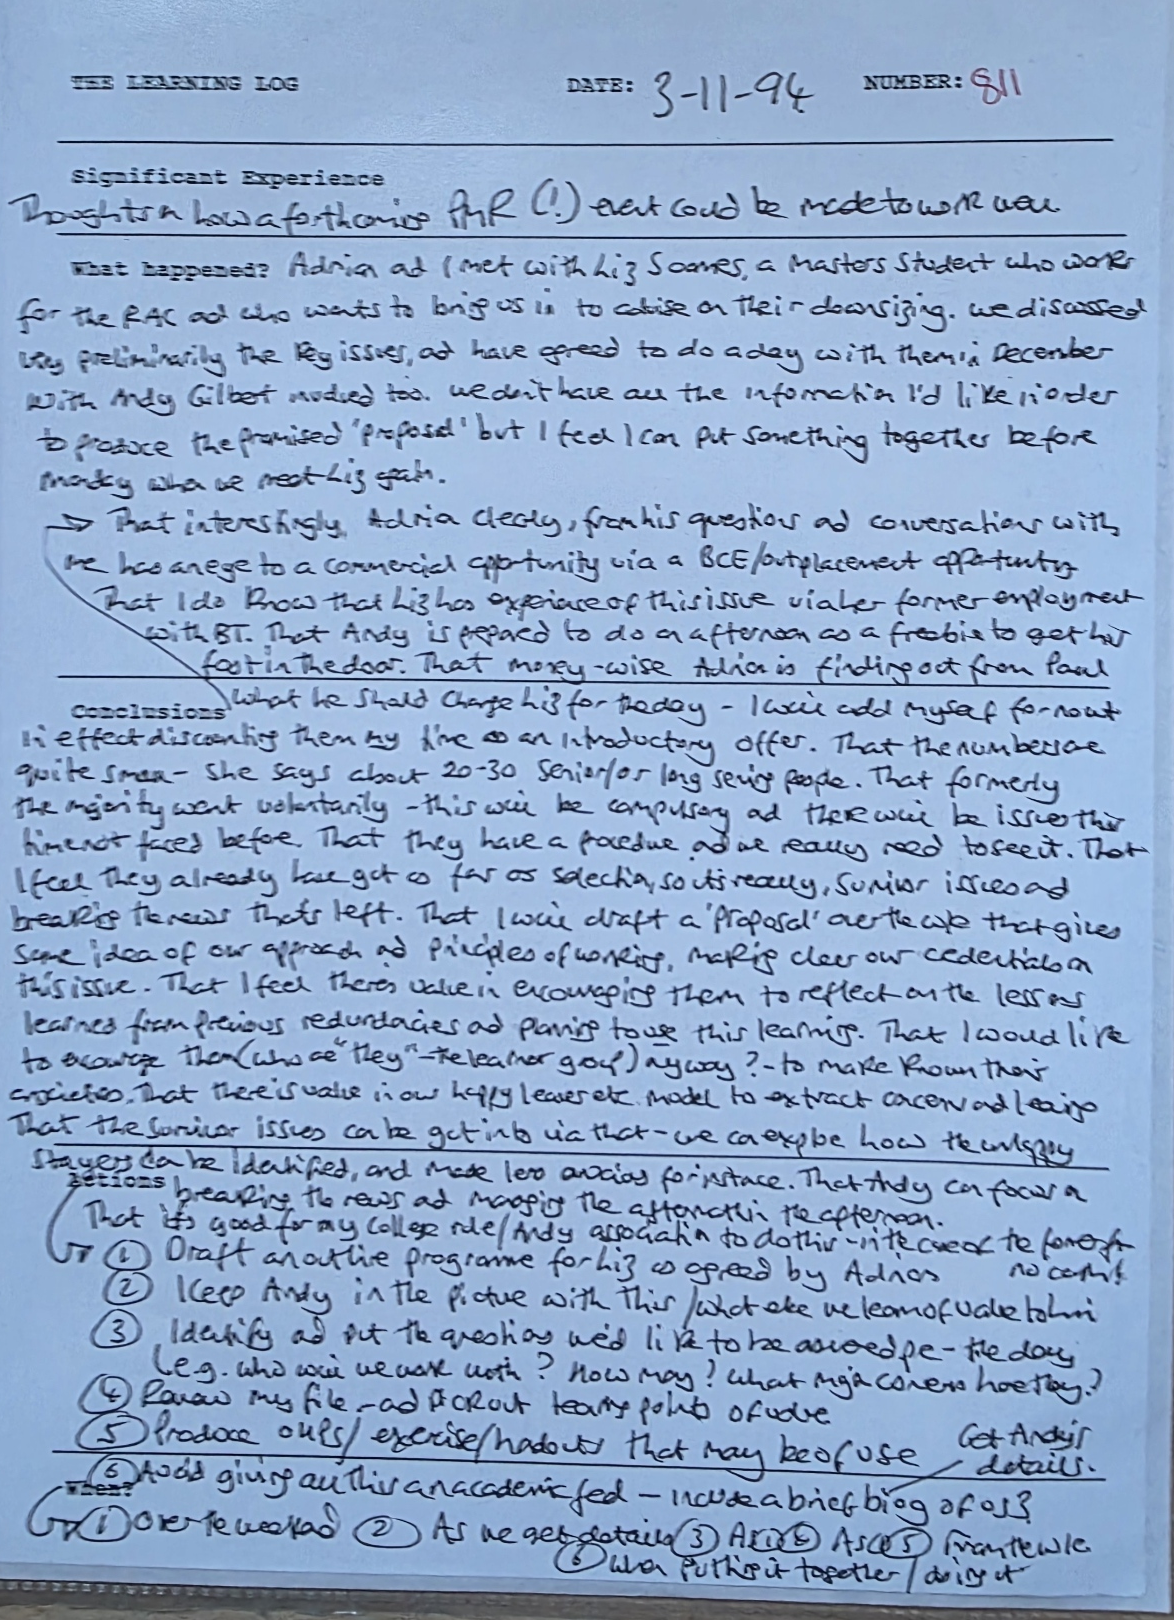 THE LEARNING LOG DATE: 3-11-94 NUMBER: 811
Significant Experience
Thoughts on how a forthcoming (!) event could be made to work well
What happened? Adrian and I met with Liz Soames, a Masters Student who works
for the RAC and who wants to bring us in to advise on their downsizing. We discussed
very preliminarily the key issues, and have agreed to do a day with them in December
with Andy Gilbert involved too. We don't have all the information I'd like in order
to produce the promised 'proposal' but I feel I can put something together before
Monday when we meet Liz again.
→ That interestingly, Adrian clearly, from his questions and conversations with
me has an eye to a commercial opportunity via a BCE/outplacement opportunity
That I do know that Liz has experience of this issue via her former employment
with BT. That Andy is prepared to do an afternoon as a freebie to get his
foot in the door. That money-wise Adrian is finding out from Paul
what he should charge Liz for the day - I will add myself for nowt
Conclusions
in effect discounting them my time as an introductory offer. That the numbers are
quite small - she says about 20-30 senior/or long serving people. That formerly
the majority went voluntarily - this will be compulsory and there will be issues this
time not faced before. That they have a procedure and we really need to see it. That
I feel they already have got as far as selection, so it's really, survivor issues and
breaking the news that's left. That I will draft a 'proposal' over the w/e that gives
some idea of our approach and principles of working, making clear our credentials on
this issue. That I feel there's value in encouraging them to reflect on the lessons
learned from previous redundancies and planning to use this learning. That I would like
to encourage them (who are "they" - the learner group) anyway? - to make known their
anxieties. That there is value in our happy leaver etc. model to extract concern and learning
That the survivor issues can be got into via that - we can explore how the unhappy
stayers can be identified, and made less anxious for instance. That Andy can focus on
Actions
breaking the news and managing the aftermath in the afternoon.
That it's good for my College role/Andy association to do this - in the case of the former for
no cash!
① Draft an outline programme for Liz as agreed by Adrian
② Keep Andy in the picture with this/what else we learn of value to him
③ Identify and put the questions we'd like to be answered pre - the day
(e.g. who will we work with? How many? What major concerns have they?)
④ Review my file - and pick out teaching points of value
⑤ Produce OHPs/exercise/handouts that may be of use
Get Andy's
details.
⑥ Avoid giving all this an academic feel - include a brief biog of us 3
When?
① Over the weekend ② As we get details ③ As ① ④ As ① ⑤ From the w/e
⑥ When putting it together/doing it